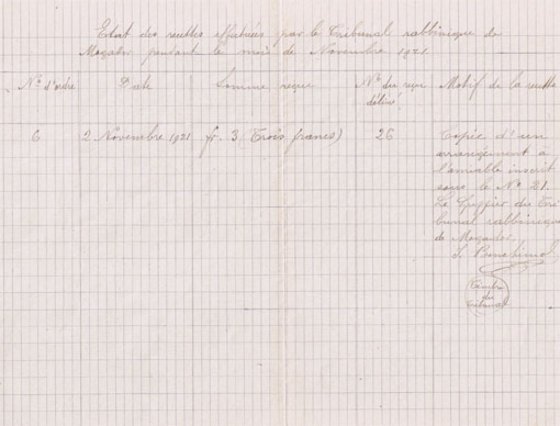 Etat des recettes effectuées par le Tribunal rabbinique de
Mogador pendant le mois de Novembre 1921.
No d'ordre Date Somme reçue No du reçu délivré Motif de la recette
6 2 Novembre 1921 fr. 3 (Trois francs) 26 Copie d'un
arrangement à
l'amiable inscrit
sous le No 21.
Le Greffier du Tri-
bunal rabbinique
de Mogador
Timbre
du
Tribunal